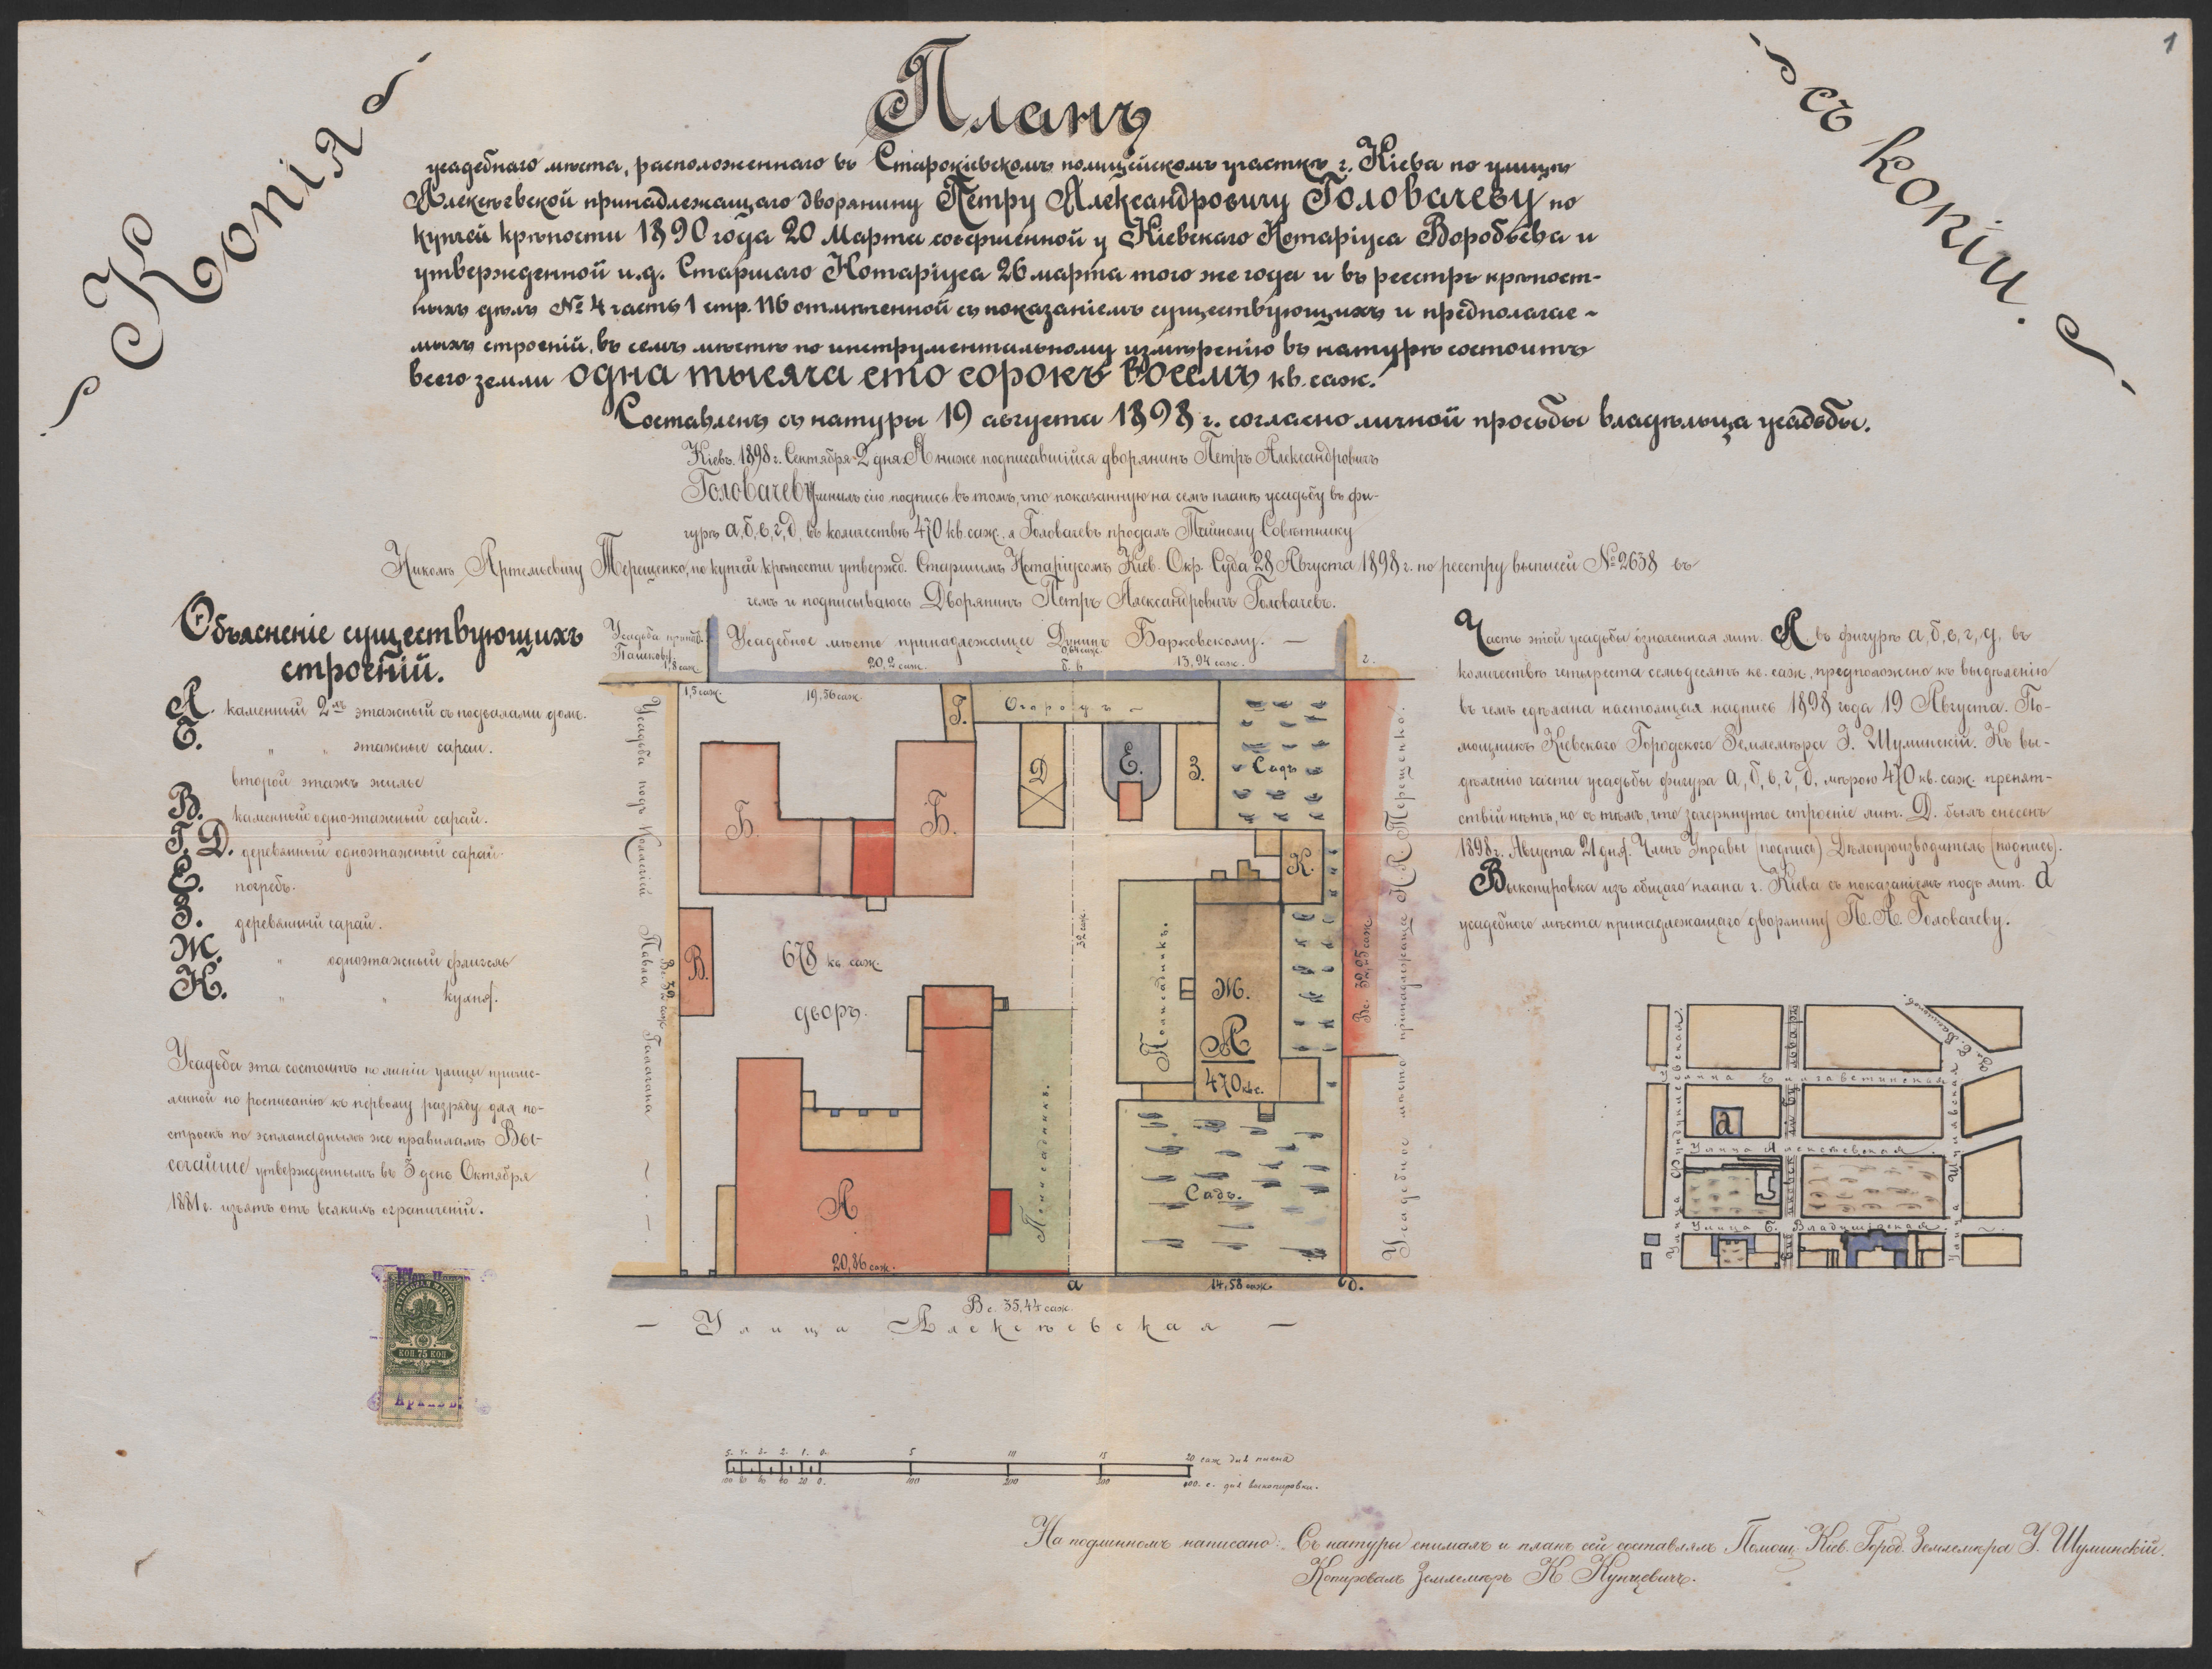 Копія
съ копіи.
1
Планъ
усадебнаго мѣста, расположеннаго въ Старокіевскомъ полицейскомъ участкѣ г. Кіева по улицѣ
Алексѣевской принадлежащаго дворянину Петру Александровичу Головачеву по
купчей крѣпости 1890 года 20 Марта совершенной у Кіевскаго Нотаріуса Воробьева и
утвержденной и.д. Старшаго Нотаріуса 26 марта того же года и въ реестръ крѣпост-
ныхъ дѣлъ № 4 часть 1 стр. 116 отмѣченной съ показаніемъ существующихъ и предполагае-
мыхъ строеній, въ семъ мѣстѣ по инструментальному измѣренію въ натурѣ состоитъ
всего земли одна тысяча сто сорокъ восемь кв. саж.
Составленъ съ натуры 19 августа 1898 г. согласно личной просьбы владѣльца усадьбы.
Кіевъ. 1898 г. Сентября 2 дня. Я ниже подписавшійся дворянинъ Петръ Александровичъ
Головачевъ учинилъ сію подпись въ томъ, что показанную на семъ планѣ усадьбу въ фи-
гурѣ а, б, в, г, д, въ количествѣ 470 кв. саж., я Головачевъ продалъ Тайному Совѣтнику
Николѣ Артемьевичу Терещенко, по купчей крѣпости утвержд. Старшимъ Нотаріусомъ Кіев. Окр. Суда 28 Августа 1898 г. по реестру выписей № 2638 въ
чемъ и подписываюсь Дворянинъ Петръ Александровичъ Головачевъ.
Объясненіе существующихъ
строеній.
А. каменный 2мъ этажный съ подвалами домъ.
Б. " " этажные сараи.
второй этажъ жилье
В. каменный одно-этажный сарай.
Г. Д. деревянный одноэтажный сарай.
Е. погребъ.
З. деревянный сарай.
Ж. " одноэтажный флигель
К. " " кухня.
Усадьба эта состоитъ по линіи улицы причис-
ленной по росписанію къ первому разряду для по-
строекъ по эспланаднымъ же правиламъ Вы-
сочайше утвержденнымъ въ 3 день Октября
1881 г. изъятъ отъ всякихъ ограниченій.
КОП. 75 КОП.
Архивъ
Усадьба принад.
Пашков.
1,8 саж.
Усадебное мѣсто принадлежащее Дунинъ Барковскому.
20,2 саж.
0,64 саж.
б. в.
13,94 саж.
г.
1,5 саж.
19,56 саж.
Г.
Огородъ
Усадьба подъ Коллегіей Павла Галагана
Б.
Б.
Д
Е.
З.
Садъ
К.
В.
Вс. 32 саж.
678 кв. саж.
дворъ.
32 саж.
Полисадникъ.
Ж.
А
470 кв. с.
Вс. 32,05 саж.
Усадебное мѣсто принадлежащее Н. А. Терещенко.
Полисадникъ.
А
Садъ.
20,86 саж.
а
14,58 саж.
д.
Вс. 35,44 саж.
Улица Алексѣевская
Часть этой усадьбы означенная лит. А. въ фигурѣ а, б, в, г, д, въ
количествѣ четыреста семьдесятъ кв. саж., предположено къ выдѣленію
въ чемъ сдѣлана настоящая надпись 1898 года 19 Августа. По-
мощникъ Кіевскаго Городского Землемѣра З. Шуминскій. Къ вы-
дѣленію части усадьбы фигура а, б, в, г, д, мѣрою 470 кв. саж. препят-
ствій нѣтъ, но съ тѣмъ, что зачеркнутое строеніе лит. Д. былъ снесенъ
1898 г. Августа 21 дня. Членъ Управы (подпись) Дѣлопроизводитель (подпись).
Выкопировка изъ общаго плана г. Кіева съ показаніемъ подъ лит. а
усадебного мѣста принадлежащаго дворянину П. А. Головачеву.
Улица Елизаветинская
а
Улица Алексѣевская
Улица Б. Владимірская
Улица Фундуклеевская
Улица Шулявская
5. 4. 3. 2. 1. 0. 5 10 15 20 саж. для плана
100 80 60 40 20 0. 100 200 300 400. с. для выкопировки.
На подлинномъ написано: Съ натуры снималъ и планъ сей составлялъ Помощ. Кіев. Город. Землемѣра З. Шуминскій.
Копировалъ Землемѣръ К. Кунцевичъ.